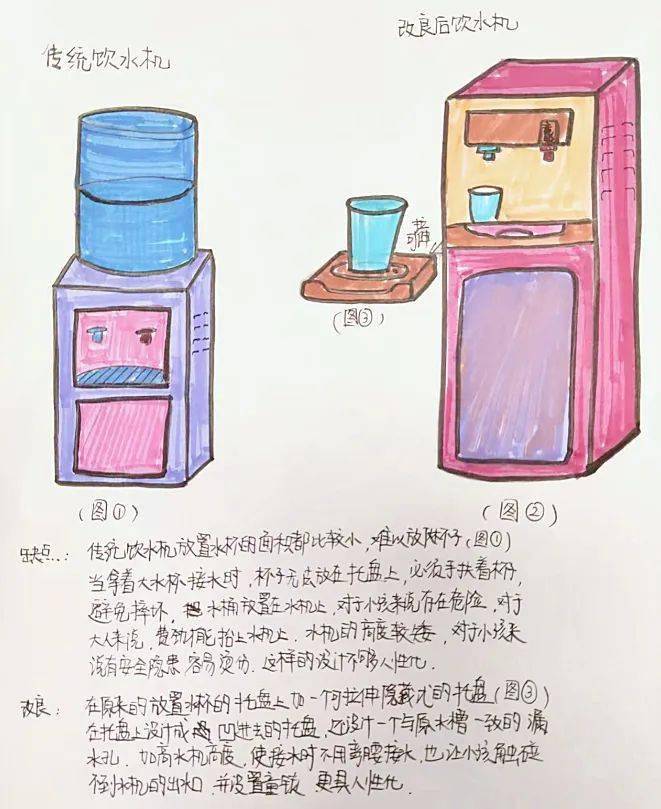 传统饮水机
改良后饮水机
可拉伸
(图③)
(图①)
(图②)
缺点: 传统饮水机放置水杯的面积都比较小,难以放两杯子(图①)
当拿着大水杯接水时,杯子无法放在托盘上,必须手扶着杯子,
避免摔坏, 水桶放置在水机上,对于小孩来说存在危险,对于
大人来说,费劲才能抬上水机上.水机的高度较矮,对于小孩来
说有安全隐患 容易烫伤.这样的设计不够人性化.
改良: 在原来的放置水杯的托盘上加一个可拉伸隐藏式的托盘(图③)
在托盘上设计成凹进去的托盘,还设计一个与原水槽一致的漏
水孔. 加高水机高度,使接水时不用弯腰接水,也让小孩触碰
不到水机的出水口.并设置童锁 更具人性化.